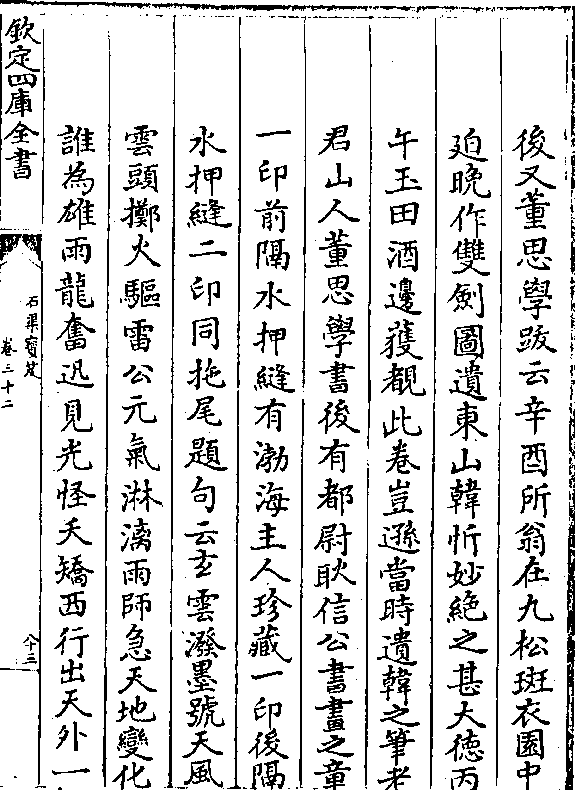 後又董思學跋云辛酉所翁在九松斑衣園中
廹晚作雙劍圖遺東山韓忻妙絶之甚大德丙
午玉田酒邊獲覩此卷豈遜當時遺韓之筆老
君山人董思學書後有都尉耿信公書畫之章
一印前隔水押縫有渤海主人珍藏一印後隔
水押縫二印同拖尾題句云玄雲潑墨號天風
雲頭擲火驅雷公元氣淋漓雨師急天地變化
誰為雄雨龍奮迅見光怪夭矯西行出天外一
欽定四庫全書
石渠寶笈
卷三十二